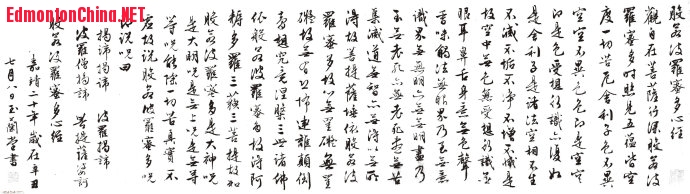 EdmontonChina.NET
般若波羅蜜多心經
觀自在菩薩行深般若波
羅蜜多時照見五蘊皆空
度一切苦厄舍利子色不異
空空不異色色即是空空
即是色受想行識亦復如
是舍利子是諸法空相不生
不滅不垢不淨不增不減是
故空中無色無受想行識無
眼耳鼻舌身意無色聲
香味觸法無眼界乃至無意
識界無無明亦無無明盡乃
至無老死亦無老死盡無苦
集滅道無智亦無得以無所
得故菩提薩埵依般若波
羅蜜多故心無罣礙無罣
礙故無有恐怖遠離顛倒
夢想究竟涅槃三世諸佛
依般若波羅蜜多故得阿
耨多羅三藐三菩提故知
般若波羅蜜多是大神咒
是大明咒是無上咒是無等
等咒能除一切苦真實不
虛故說般若波羅蜜多咒
即說咒曰
揭諦揭諦 波羅揭諦
波羅僧揭諦 菩提薩婆訶
般若波羅蜜多心經
嘉靖二十年歲在辛丑
七月八日玉蘭堂書